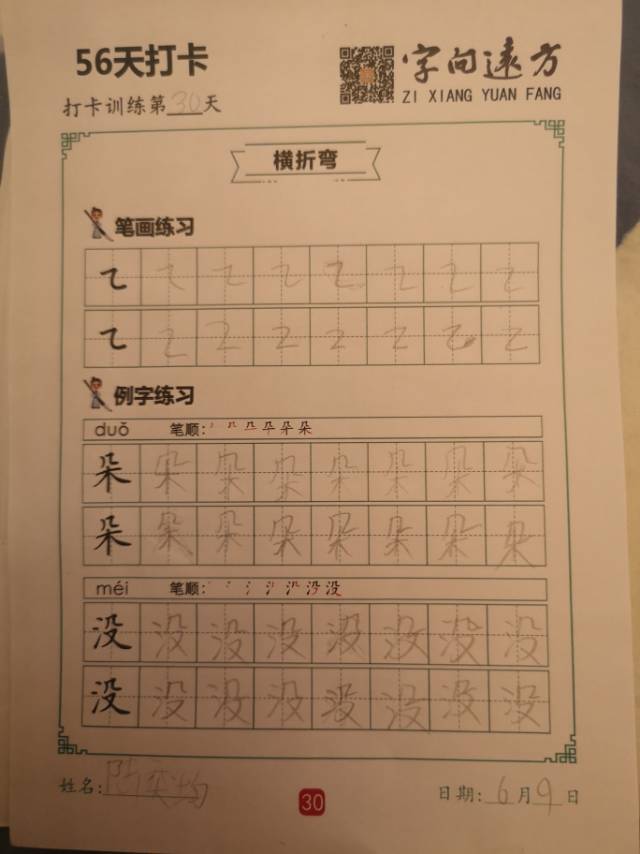 56天打卡
字向远方
打卡训练第30天
ZI XIANG YUAN FANG
横折弯
笔画练习
例字练习
duǒ 笔顺:
朵 朵 朵 朵 朵 朵 朵 朵
朵 朵 朵 朵 朵 朵 朵 朵
méi 笔顺:
没 没 没 没 没 没 没 没
没 没 没 没 没 没 没 没
姓名:
30
日期: 6月9日